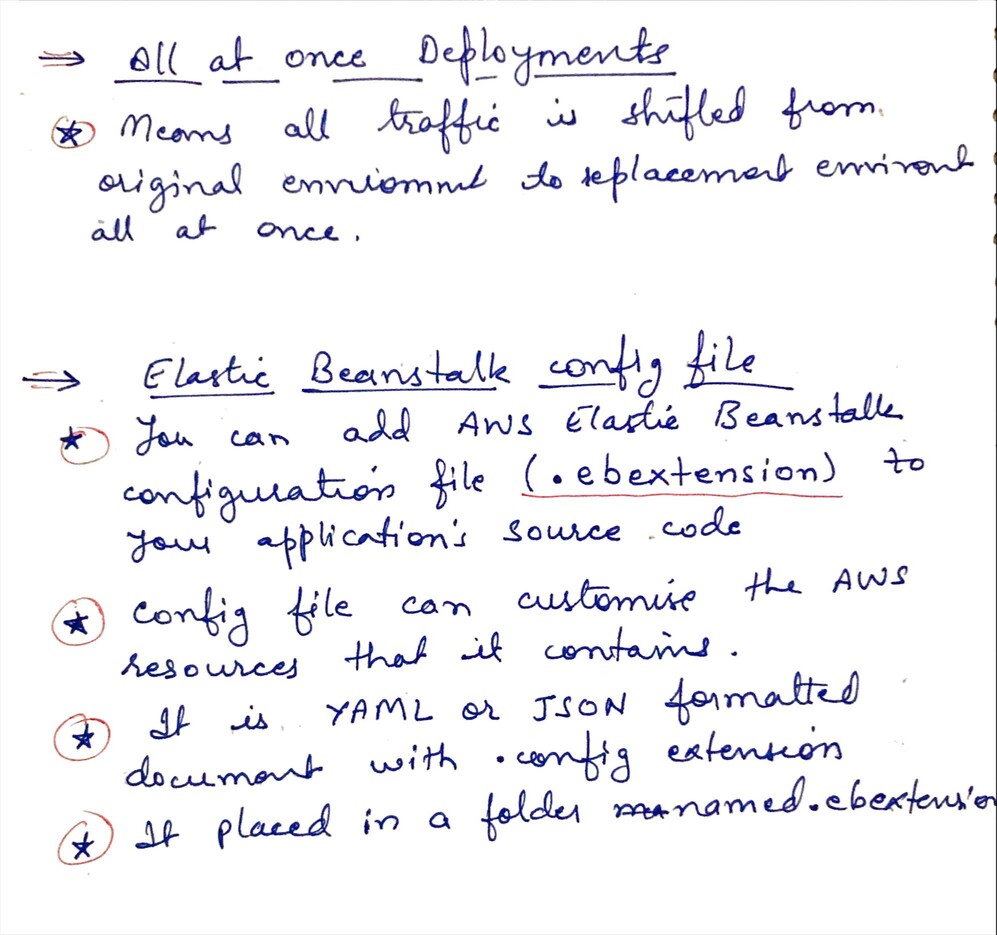 ⇒ All at once Deployments
★ Means all traffic is shifted from
original enviromnt to replacement environt
all at once.
⇒ Elastic Beanstalk config file
★ You can add AWS Elastic Beanstalk
configuration file (.ebextension) to
your application's source code
★ config file can customise the AWS
resources that it contains.
★ It is YAML or JSON formatted
document with .config extension
★ It placed in a folder named .ebextension